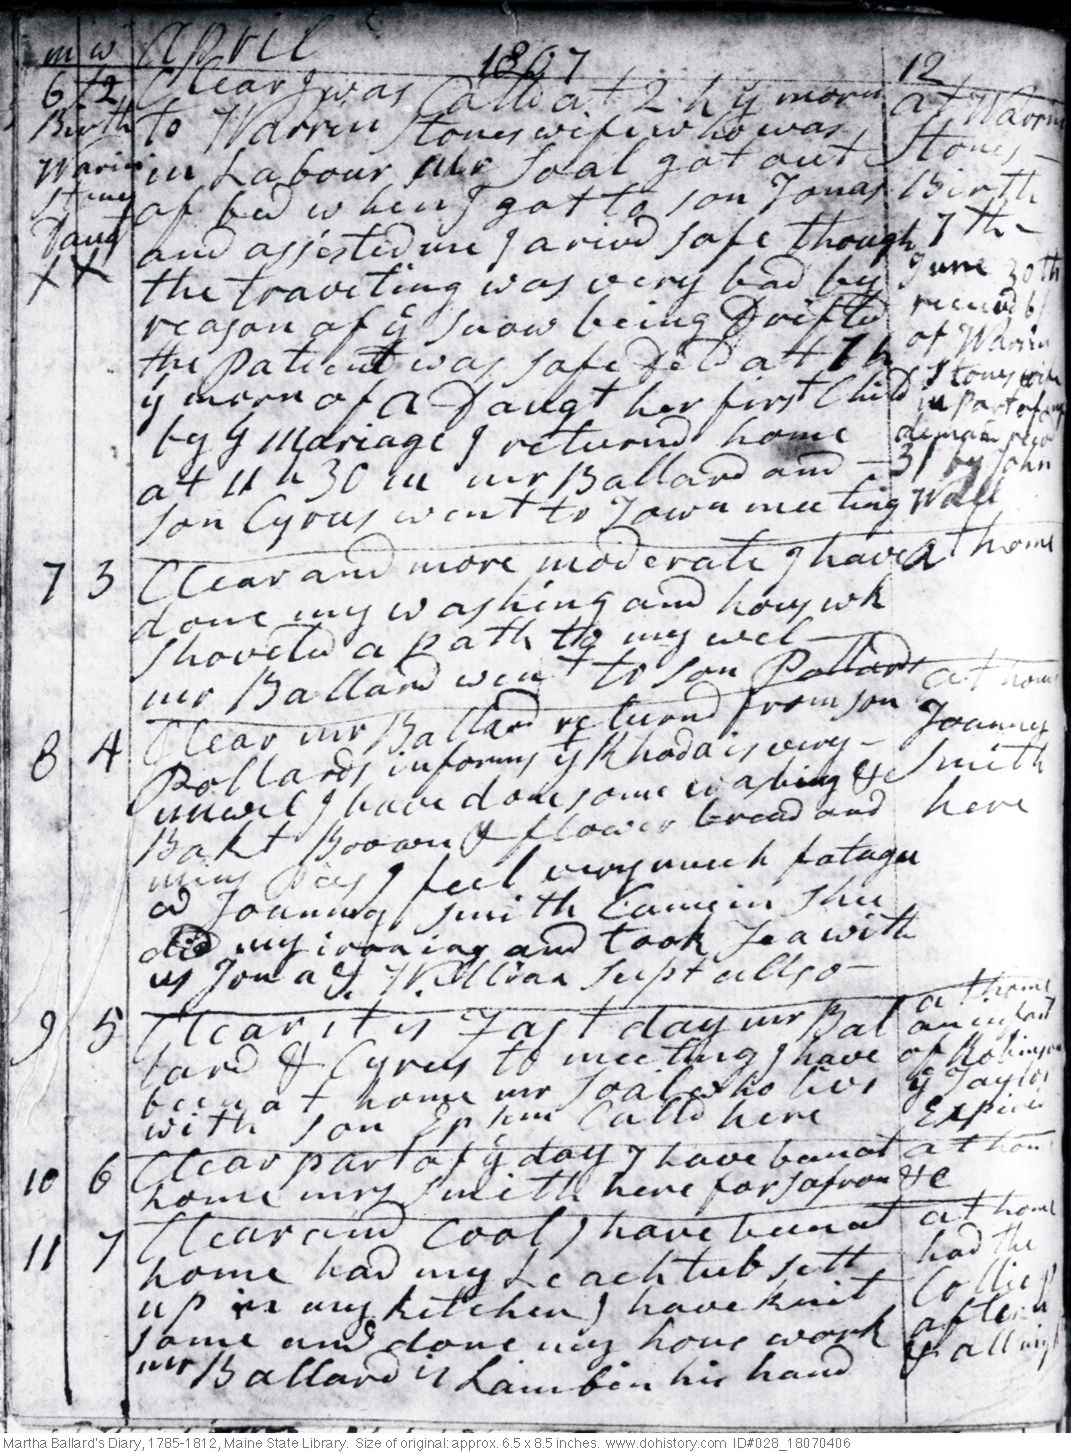 m w April 1807 12
6 2 Clear I was Calld at 2 h ÿ morn
Birth to Warrin Stones wife who was
Warin in Labour mr Soal got out
Stones of bed when I got to son Jonas
Daugt and assisted me I arivd safe though
X X the traveling was very bad by
reason of ÿ snow being Drifted
the patient was safe ded at 7 h
ÿ morn of a Daugt her first Child
by ÿ Mariage I returnd home
at 11 h 30 m mr Ballard and
son Cyrus went to Town meeting
at Warrin
Stones
Birth
7th
June 30th
receivd 6/
of Warrin
Stones wife
in part of my
31 by John
Wall
7 3 Clear and more moderate I have at home
done my washing and hous wk
shoveld a path to my wel
mr Ballard went to son Pollards
8 4 Clear mr Ballard returnd from son at home
Pollards informs ÿ Rhoda is very Joanney
unwel I have done some washing & Smith
Bakt Brown & flower bread and here
mins Pies I feel very much fatagu
ed Joanney Smith Came in shee
did my ironing and took Tea with
us Jona & William supt allso
9 5 Clear it is Fast day mr Bal at home
lard & Cyrus to meeting I have an infant
been at home mr Soal who lives of Robinson
with son Ephm Calld here ÿ Taylor
Expired
10 6 Clear part of ÿ day I have been at at home
home mrs Smith here for safron &c
11 7 Clear and Cool I have been at at home
home had my Leach tub sett had the
up in my kitchen I have knit Collic
some and done my hous work after n
mr Ballard is Lame in his hand & all night
Martha Ballard's Diary, 1785-1812, Maine State Library. Size of original: approx. 6.5 x 8.5 inches. www.dohistory.com ID#028_18070406